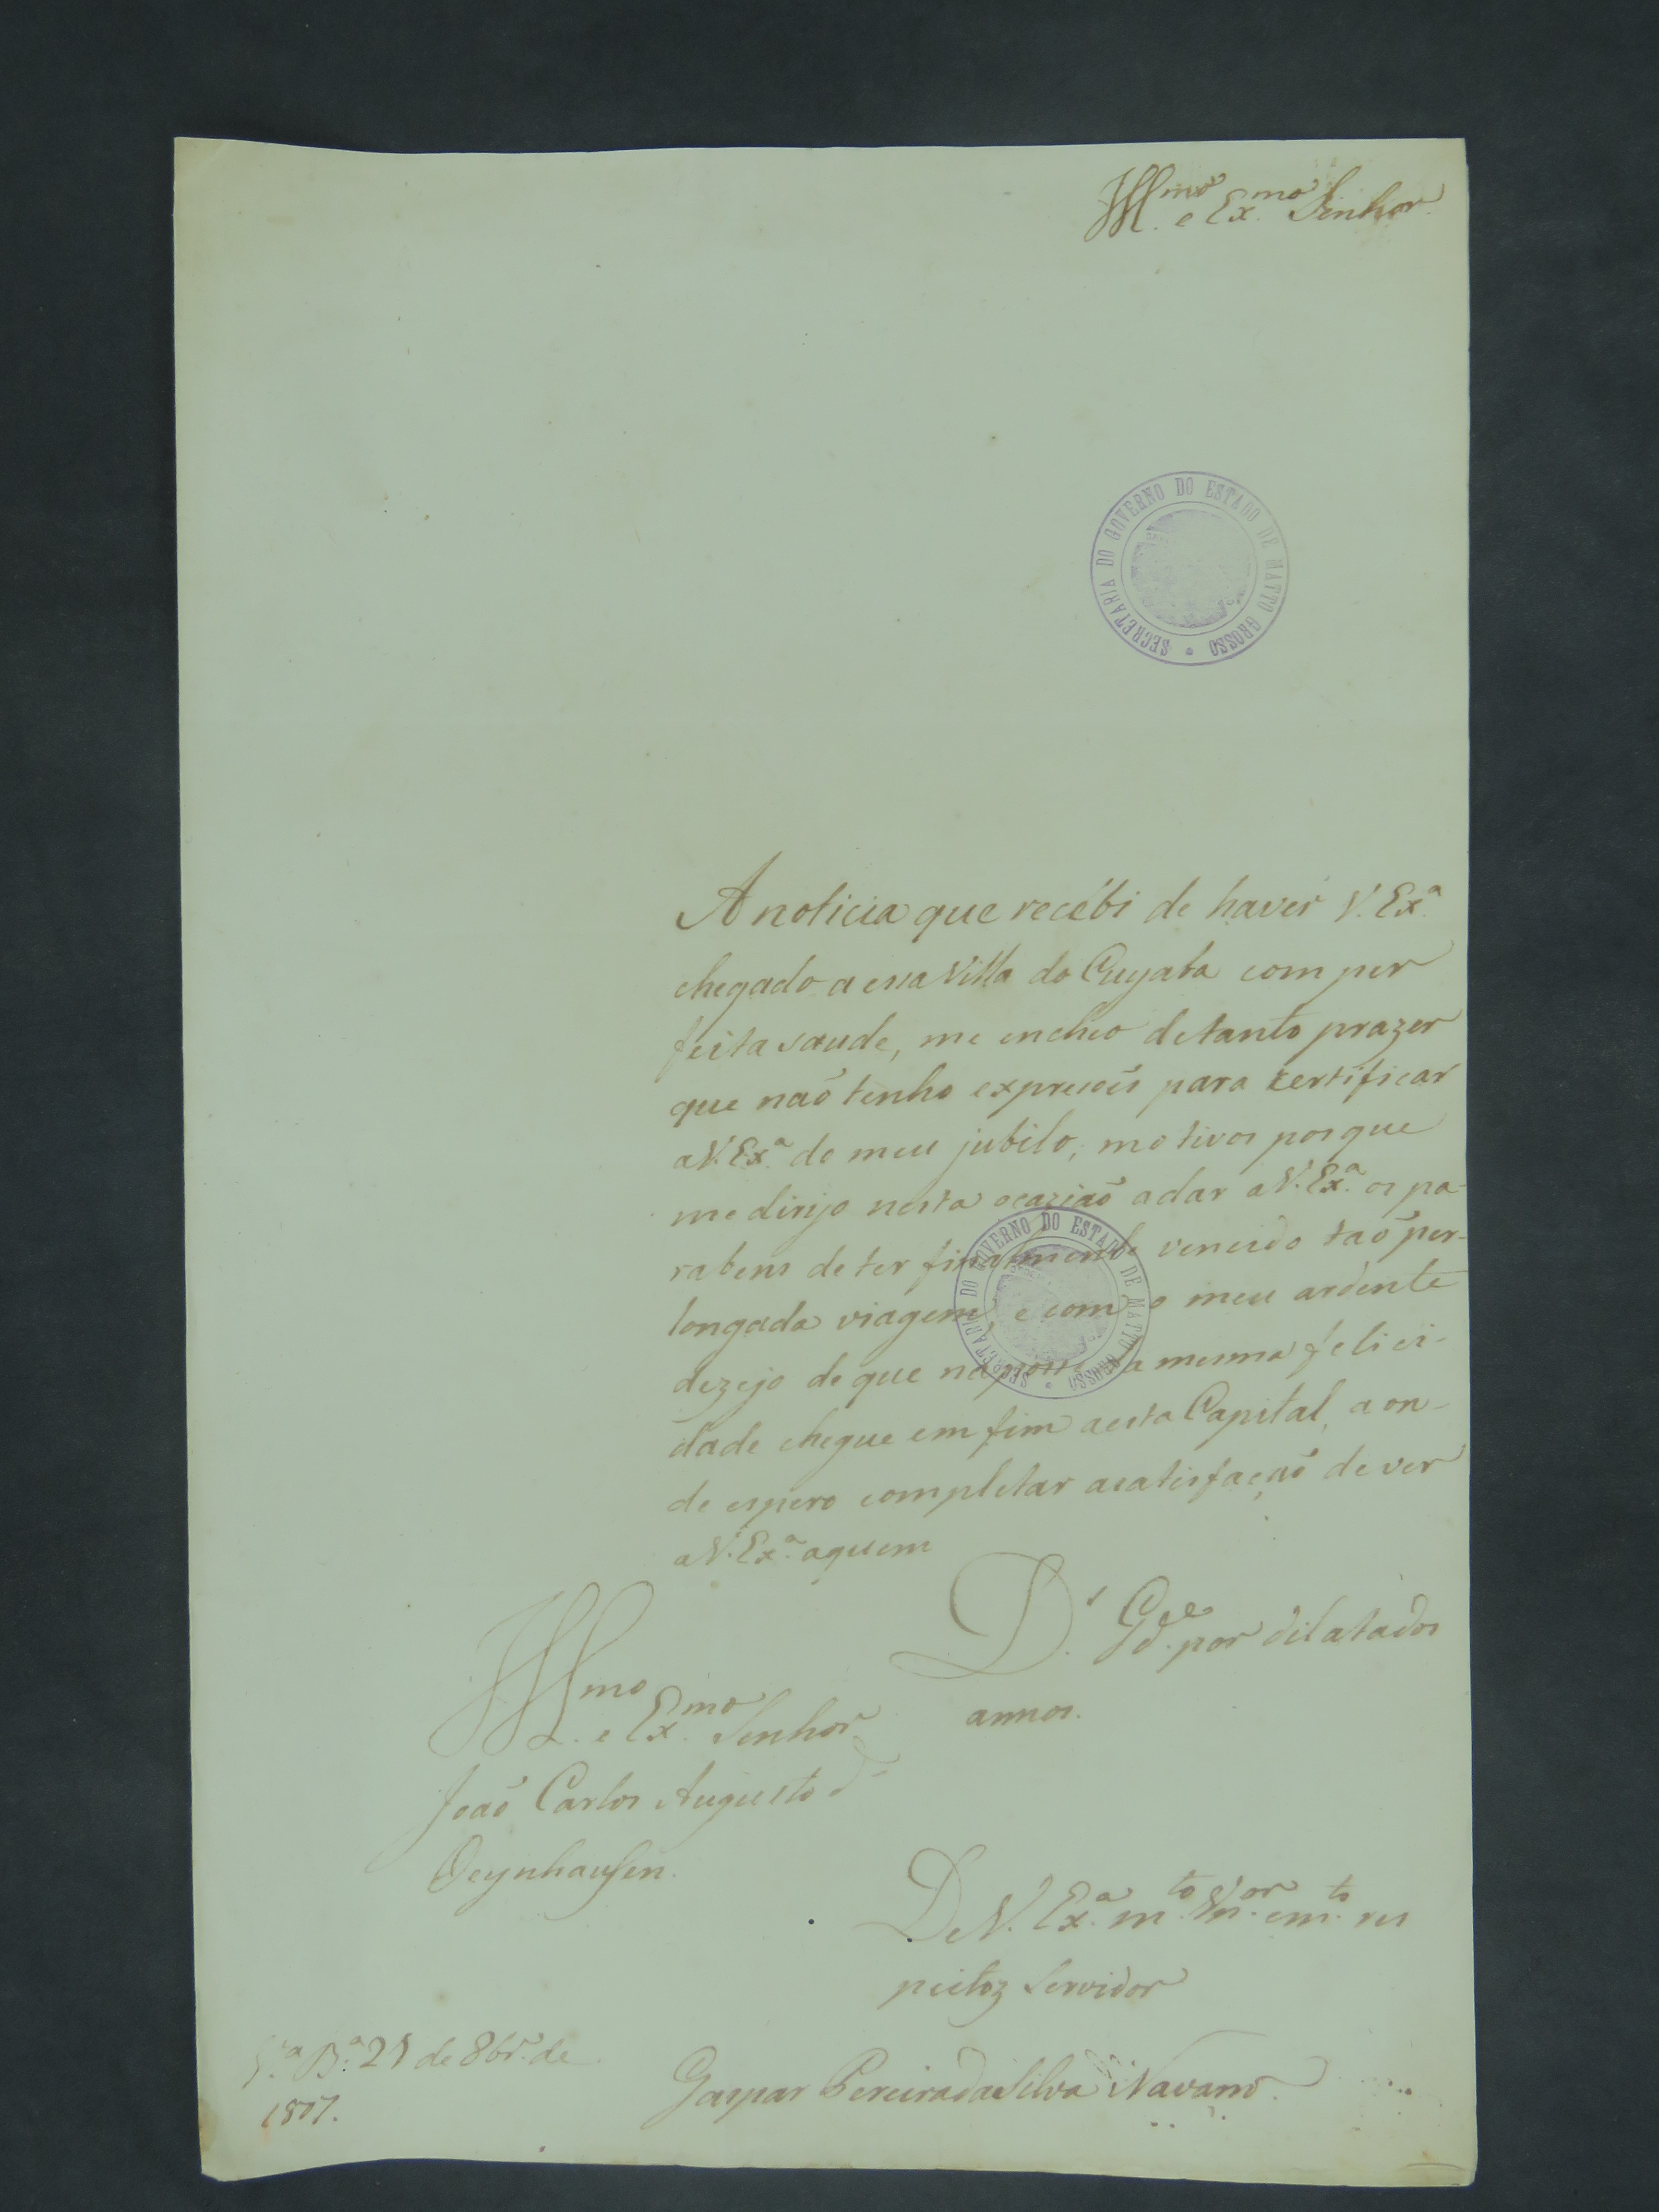 Ill.mo e Ex.mo Senhor
SECRETARIA DO GOVERNO DO ESTADO DE MATTO GROSSO
A noticia que recebi de haver V. Ex.ª
chegado a essa Villa do Cuyaba com per
feita saude, me encheo de tanto prazer
que naõ tenho expreçoẽs para certificar
a V. Ex.ª do meu jubilo, motivos porque
me dirijo nesta ocaziaõ a dar a V. Ex.ª os pa-
rabens de ter finalmente vencido taõ per-
longada viagem, e com o meu ardente
dezejo de que na posse da mesma felici-
dade chegue em fim a esta Capital, a on-
de espero completar a satisfaçaõ de ver
a V. Ex.ª aquem
SECRETARIA DO GOVERNO DO ESTADO DE MATTO GROSSO
D.s G.de por dilatados
annos.
Ill.mo e Ex.mo Senhor
Joaõ Carlos Augusto d'
Oeynhausen.
De V. Ex.ª m.to V.or e m.to res
peitoz Servidor
Gaspar Pereira da Silva Navarro
V.ª B.ª 21 de 8br.º de
1807.